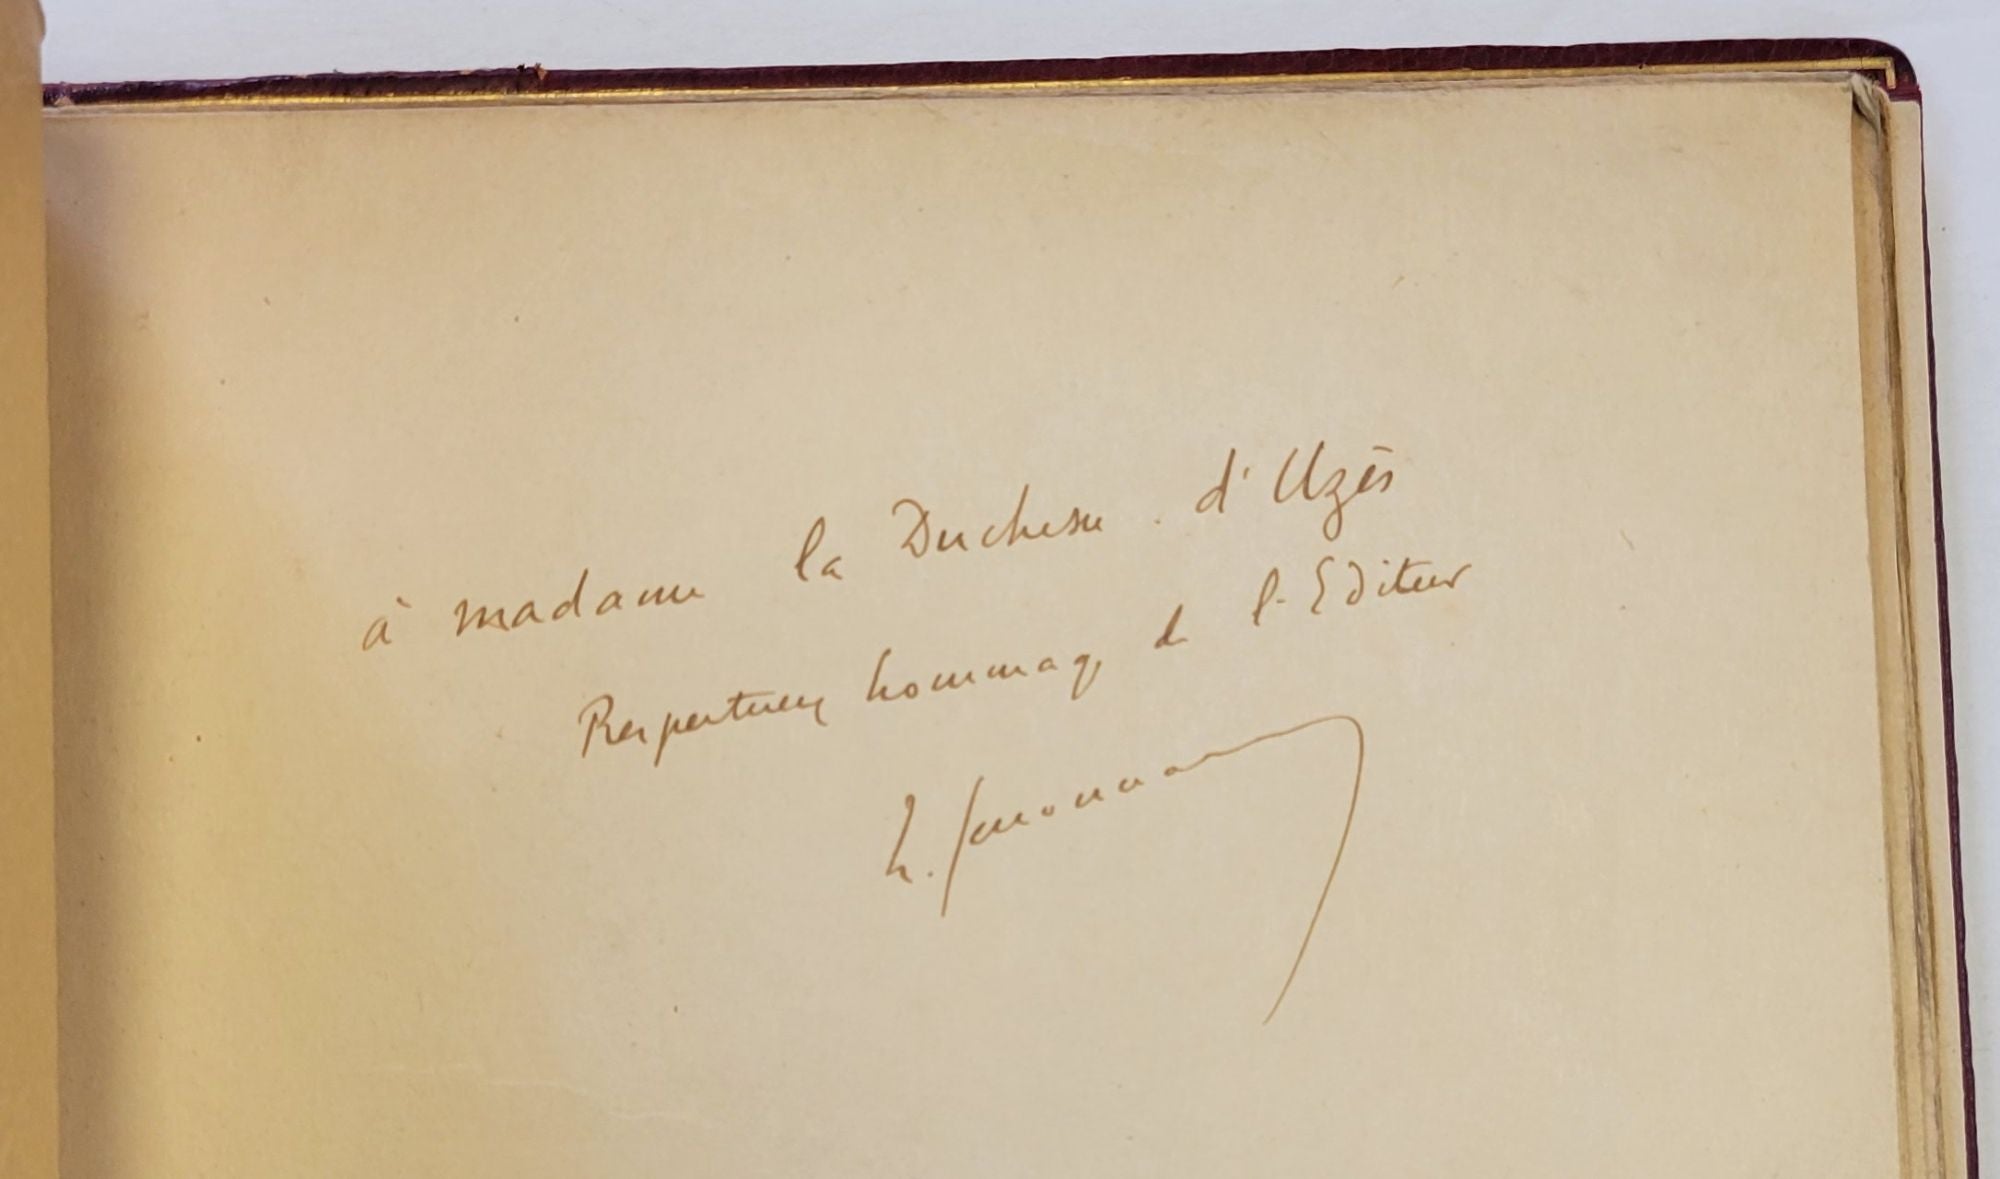 à Madame la Duchesse d'Uzès
Respectueux hommage de l'Editeur